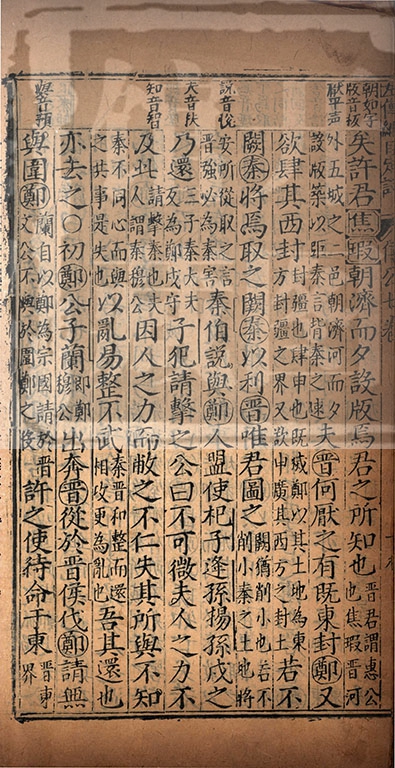 朝如字
版音板
厭平聲
說音悅
夫音扶
知音智
與音預
矣許君焦瑕朝濟而夕設版焉君之所知也晉君謂惠公也焦瑕晉河
外五城之二邑朝濟河而夕設版築以距秦言背秦之速夫晉何厭之有既東封鄭又
欲肆其西封封疆也肆申也既滅鄭以其土地為東方封疆之界又欲申廣其西方之封土若不
闕秦將焉取之闕秦以利晉唯君圖之闕猶削小也若不削小秦之土地將
安所從取之言晉強必為秦害秦伯說與鄭人盟使杞子逢孫揚孫戍之
乃還三子秦大夫反為鄭戍守子犯請擊之公曰不可微夫人之力不
及此請擊秦也夫人謂秦穆公因人之力而敝之不仁失其所與不知
秦不同心而與之共事是失也以亂易整不武秦晉和整而還相攻更為亂也吾其還也
亦去之〇初鄭公子蘭即鄭穆公出奔晉從於晉侯伐鄭請無
與圍鄭蘭自以鄭為宗國請於文公不與於圍鄭之役晉許之使待命于東晉東界